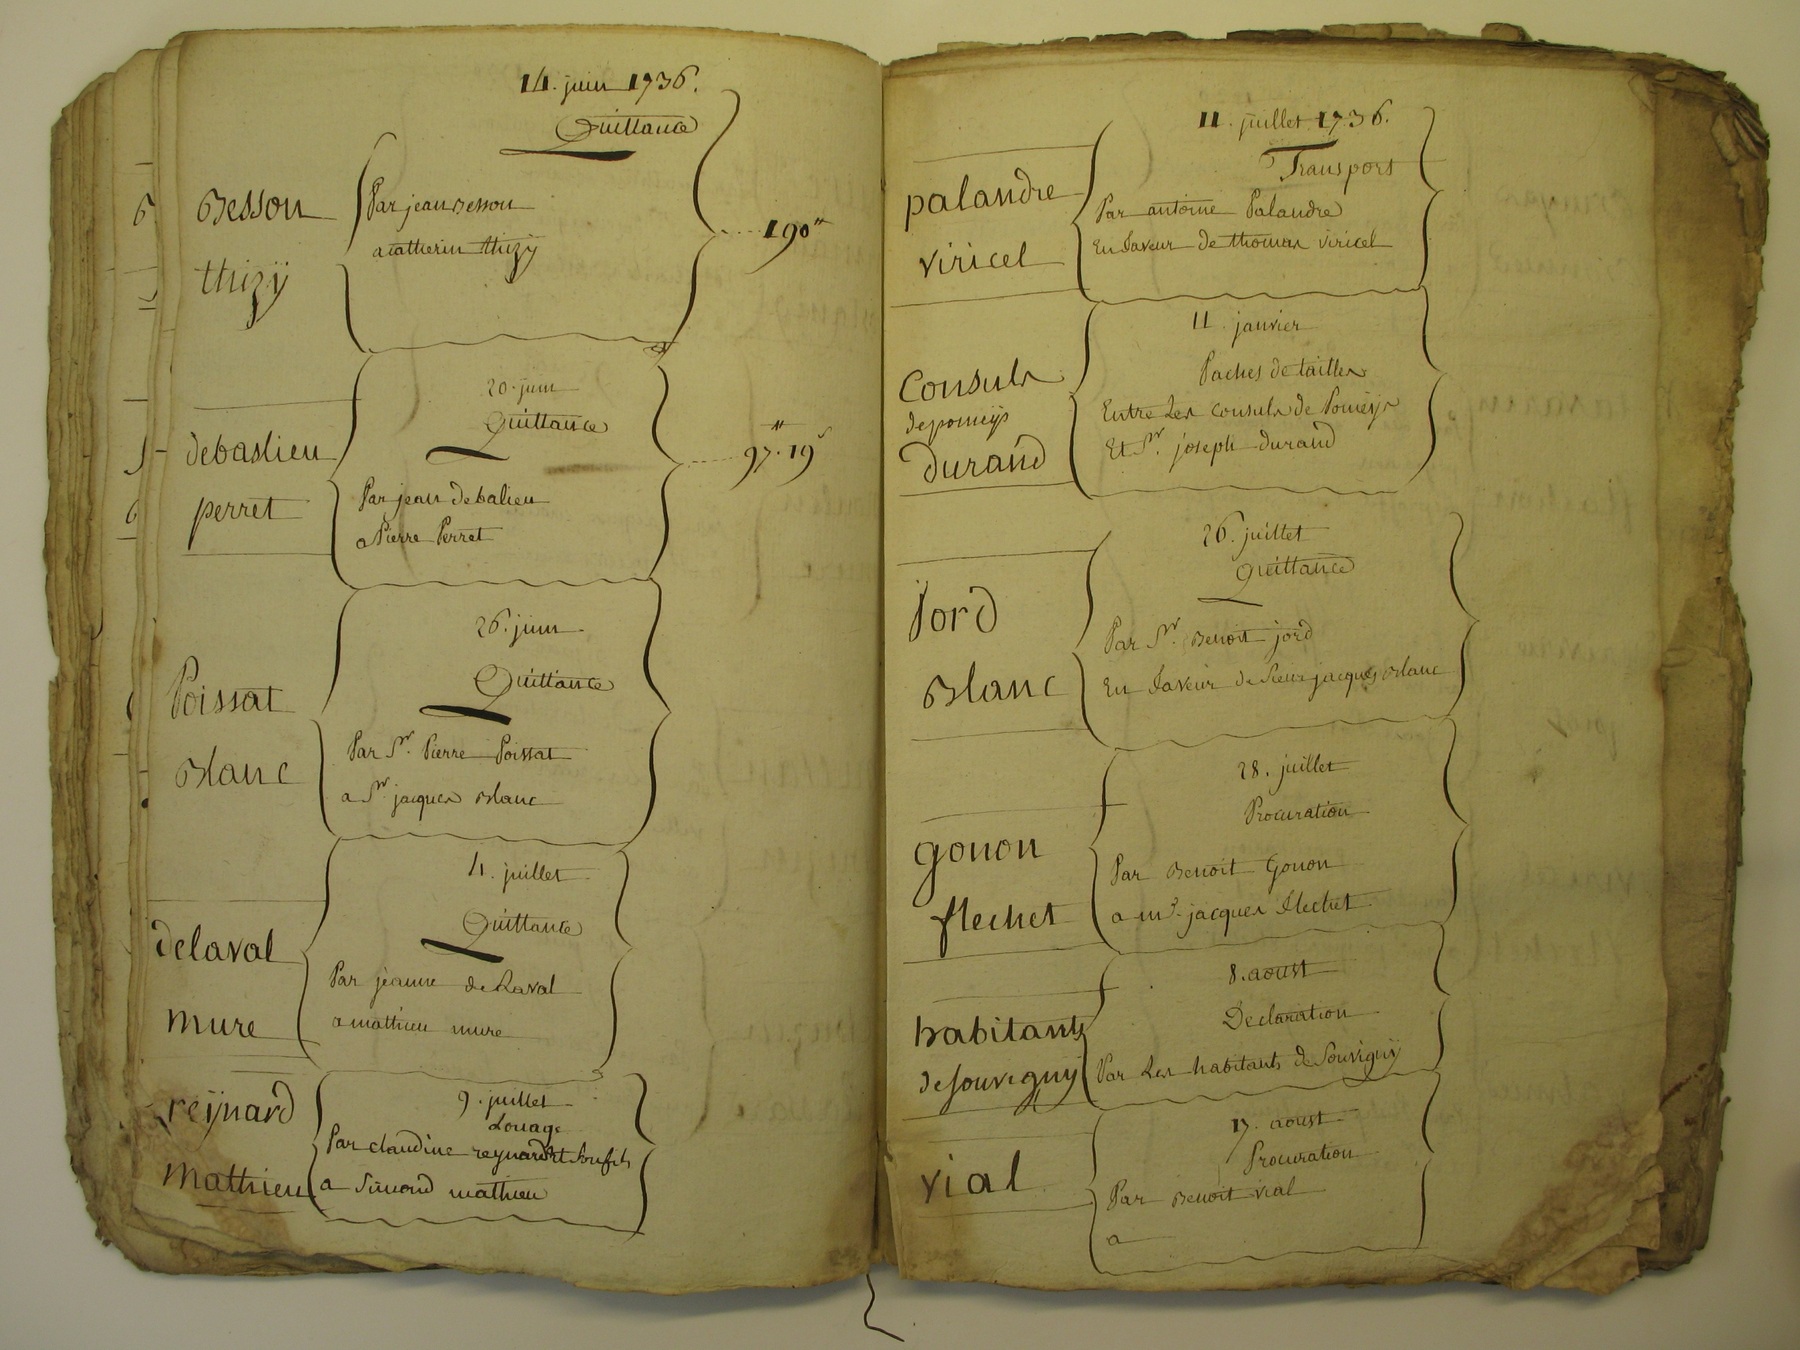 14. juin 1736.
Quittance
Besson
Par jean Besson
a catherin thizÿ
thizÿ
190"
20. juin
Quittance
debaslieu
97" 19s
Par jean debalieu
perret
a Pierre Perret
26. juin
Quittance
Poissat
Par Sr. Pierre Poissat
Blanc
a Sr. jacques Blanc
4. juillet
Quittance
delaval
Par jeanne de Laval
mure
a mathieu mure
9. juillet
Louage
reÿnard
Par claudine reynard et son fils
Mathieu
a Simond mathieu
11. juillet 1736.
Transport
palandre
Par antoine Palandre
En faveur de thomas viricel
viricel
11. janvier
Paches de tailles
Consuls
Entre Les Consuls de Pomeÿs
depomeijs
Et Sr. joseph durand
Durand
26. juillet
quittance
jord
Par Sr. Benoit jord
En faveur de Sieur jacques Blanc
Blanc
28. juillet
Procuration
gonon
Par Benoit Gonon
flechet
a mr. jacques flechet
8. aoust
Declaration
habitants
Par Les habitants de Souvignÿ
de souvignÿ
17. aoust
Procuration
vial
Par Benoit vial
a